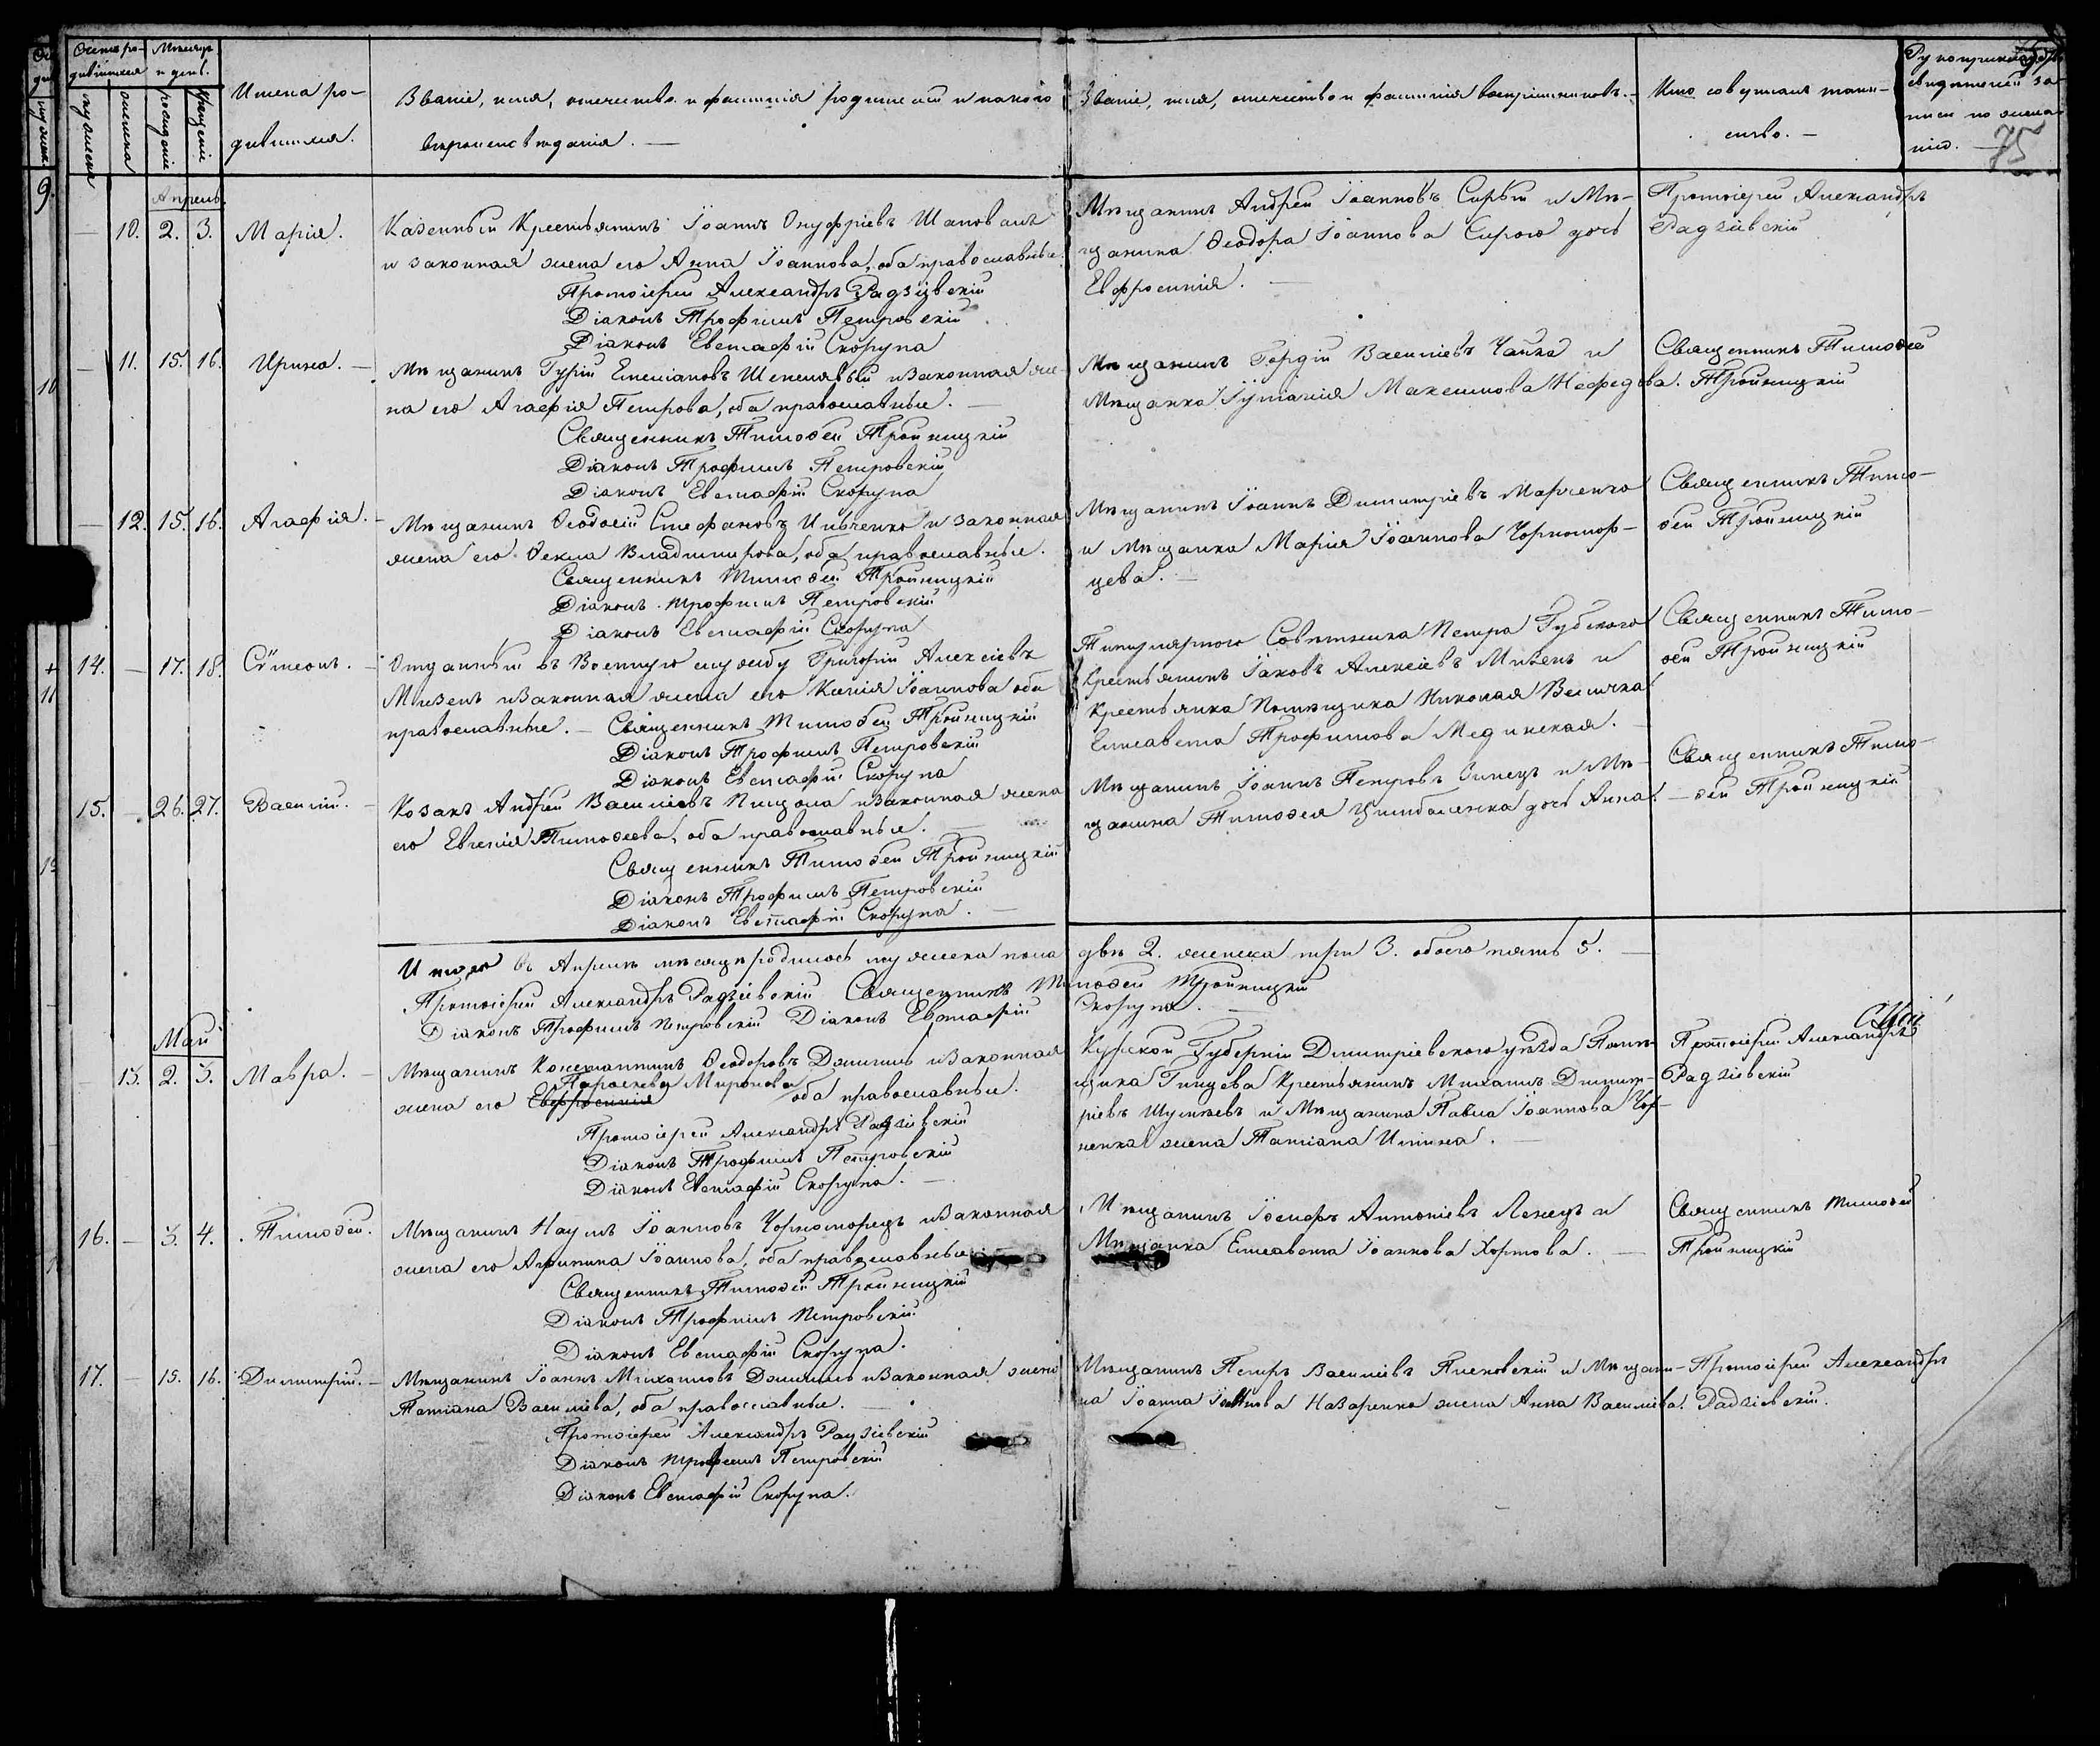 Счетъ ро-
дившихся
Мѣсяцъ
и день.
мужеска
женска
рожденіе
крещеніе
Имена ро-
дившихся.
Званіе, имя, отечество и фамилія родителей и какого
вѣроисповѣданія. —
Званіе, имя, отечество и фамилія воспріемниковъ. —
Кто совершалъ таин-
ство. —
Рукоприкладство
свидетелей за-
писи по жела-
нію. —
75
Апрель.
— 10. 2. 3. Марія.
Казенный Крестьянинъ Іоаннъ Онуфріевъ Шаповалъ
и законная жена его Анна Іоаннова, оба православные.
Протоіерей Александръ Радзіевскій
Діаконъ Трофимъ Петровскій
Діаконъ Евстафій Скорупа
Мѣщанинъ Андрей Іоанновъ Сирый и Мѣ-
щанина Ѳеодора Іоаннова Сирого дочь
Евфросинія. —
Протоіерей Александръ
Радзіевскій
— 11. 15. 16. Ирина. —
Мѣщанинъ Гурій Емеліановъ Шепелявый и законная же-
на его Агафія Петрова, оба православные. —
Священникъ Тимоѳей Тройницкій
Діаконъ Трофимъ Петровскій
Діаконъ Евстафій Скорупа
Мѣщанинъ Гордій Василіевъ Чайка и
Мѣщанка Іуліанія Максимова Нефедова.
Священникъ Тимоѳей
Тройницкій
— 12. 15. 16. Агафія. —
Мѣщанинъ Ѳеодосій Стефановъ Ивченко и законная
жена его Ѳекла Владимирова, оба православные.
Священникъ Тимоѳей Тройницкій
Діаконъ Трофимъ Петровскій
Діаконъ Евстафій Скорупа
Мѣщанинъ Іоаннъ Димитріевъ Марченко
и Мѣщанка Марія Іоаннова Чорномор-
цева. —
Священникъ Тимо-
ѳей Тройницкій
14. — 17. 18. Сѵмеонъ. —
Отданный въ Военную службу Григорій Алексіевъ
Мизенъ и законная жена его Ксенія Іоаннова оба
православные. — Священникъ Тимоѳей Тройницкій
Діаконъ Трофимъ Петровскій
Діаконъ Евстафій Скорупа
Титулярного Совѣтника Петра Губского
Крестьянинъ Іаковъ Алексіевъ Мизенъ и
Крестьянка Помѣщика Николая Величка
Елисавета Трофимова Мединская. —
Священникъ Тимо-
ѳей Тройницкій
15. — 26. 27. Василій. —
Козакъ Андрей Василіевъ Пищола и законная жена
его Евгенія Тимоѳеева, оба православные. —
Священникъ Тимоѳей Тройницкій
Діаконъ Трофимъ Петровскій
Діаконъ Евстафій Скорупа. —
Мѣщанинъ Іоаннъ Петровъ Зинецъ и Мѣ-
щанина Тимоѳея Цимбаленка дочь Анна. —
Священникъ Тимо-
ѳей Тройницкій
Итого въ Апрелѣ мѣсяцѣ родилось мужеска пола двѣ 2. женска три 3. обоего пять 5. —
Протоіерей Александръ Радзіевскій Священникъ Тимоѳей Тройницкій
Діаконъ Трофимъ Петровскій Діаконъ Евстафій Скорупа. —
Май
Май
13. 2. 3. Мавра. —
Мѣщанинъ Константинъ Ѳеодоровъ Данишъ и законная
Параскева Миронова
жена его Евфросинія оба православные.
Протоіерей Александръ Радзіевскій
Діаконъ Трофимъ Петровскій
Діаконъ Евстафій Скорупа. —
Курской Губерніи Дмитріевского уѣзда Помѣ-
щика Гинцева Крестьянинъ Михаилъ Димит-
ріевъ Шумаевъ и Мѣщанина Павла Іоаннова Чор-
ненка жена Татіана Ильина. —
Протоіерей Александръ
Радзіевскій
16. — 3. 4. Тимоѳей.
Мѣщанинъ Наумъ Іоанновъ Чорноморецъ и законная
жена его Агрипина Іоаннова, оба православные.
Священникъ Тимоѳей Тройницкій
Діаконъ Трофимъ Петровскій
Діаконъ Евстафій Скорупа.
Мѣщанинъ Іосифъ Антоніевъ Ленецъ и
Мѣщанка Елисавета Іоаннова Хортова. —
Священникъ Тимоѳей
Тройницкій
17. — 15. 16. Димитрій. —
Мѣщанинъ Іоаннъ Михаиловъ Данишъ и законная жена
Татіана Василіева, оба православные. —
Протоіерей Александръ Радзіевскій
Діаконъ Трофимъ Петровскій
Діаконъ Евстафій Скорупа.
Мѣщанинъ Петръ Василіевъ Псковскій и Мѣщани-
на Іоанна Іоаннова Назаренка жена Анна Василіева.
Протоіерей Александръ
Радзіевскій.